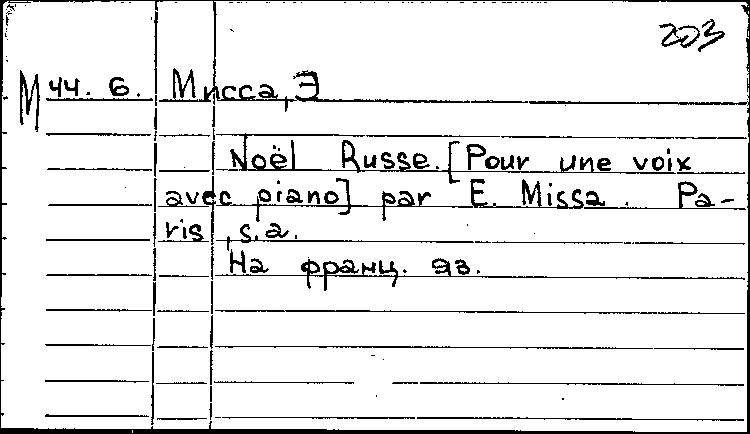 203
М 44. 6. Мисса, Э
Noël Russe. [Pour une voix
avec piano] par E. Missa. Pa-
ris, s.a.
На франц. яз.